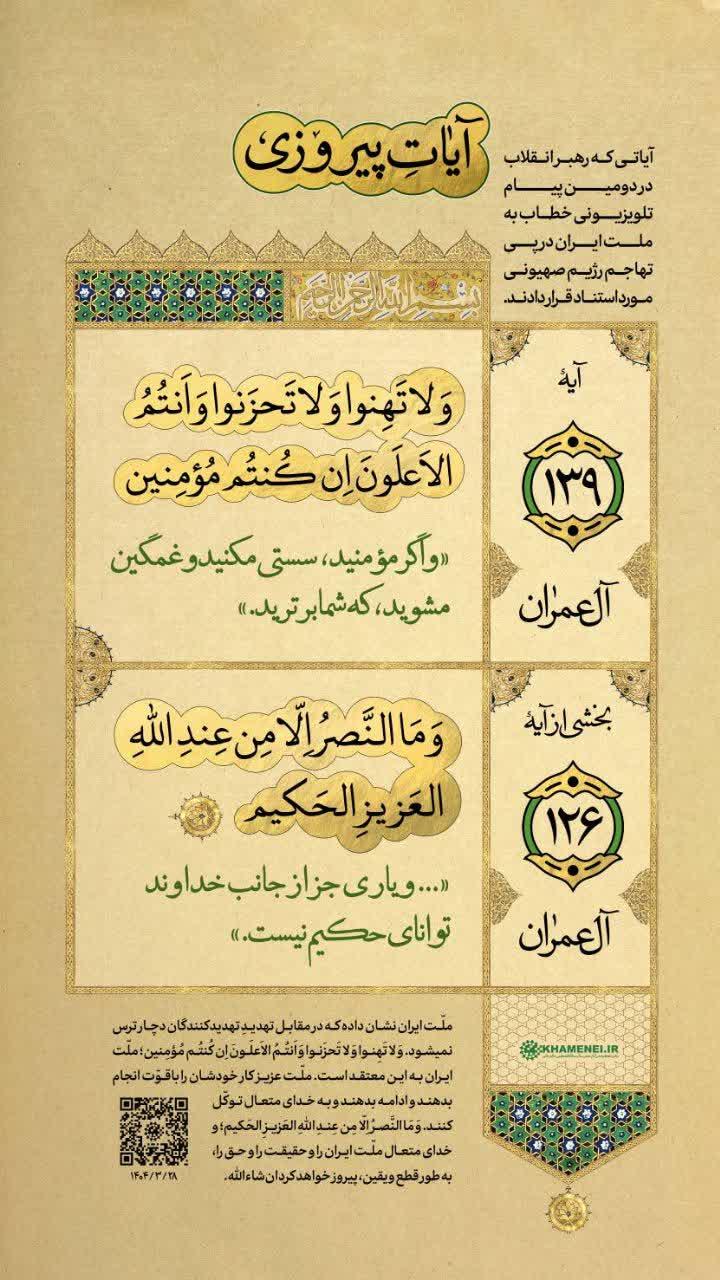 آیاتِ پیروزی
آیاتی که رهبر انقلاب
در دومین پیام
تلویزیونی خطاب به
ملت ایران در پی
تهاجم رژیم صهیونی
مورد استناد قرار دادند.
بِسمِ اللهِ الرَّحمٰنِ الرَّحیم
آیهٔ
۱۳۹
آل عمران
وَ لا تَهِنوا وَ لا تَحزَنوا وَ اَنتُمُ
الاَعلَونَ اِن کُنتُم مُؤمِنین
«و اگر مؤمنید، سستی مکنید و غمگین
مشوید، که شما برترید.»
بخشی از آیهٔ
۱۲۶
آل عمران
وَ مَا النَّصرُ اِلّا مِن عِندِ اللهِ
العَزیزِ الحَکیم
«... و یاری جز از جانب خداوند
توانای حکیم نیست.»
KHAMENEI.IR
ملّت ایران نشان داده که در مقابل تهدیدِ تهدیدکنندگان دچار ترس
نمیشود. وَ لا تَهِنوا وَ لا تَحزَنوا وَ اَنتُمُ الاَعلَونَ اِن کُنتُم مُؤمِنین؛ ملّت
ایران به این معتقد است. ملّت عزیز کار خودشان را با قوّت انجام
بدهند و ادامه بدهند و به خدای متعال توکّل
کنند. وَ مَا النَّصرُ اِلّا مِن عِندِ اللهِ العَزیزِ الحَکیم؛ و
خدای متعال ملّت ایران را و حقیقت را و حق را،
به طور قطع و یقین، پیروز خواهد کرد ان شاءالله.
۱۴۰۴/۳/۲۸